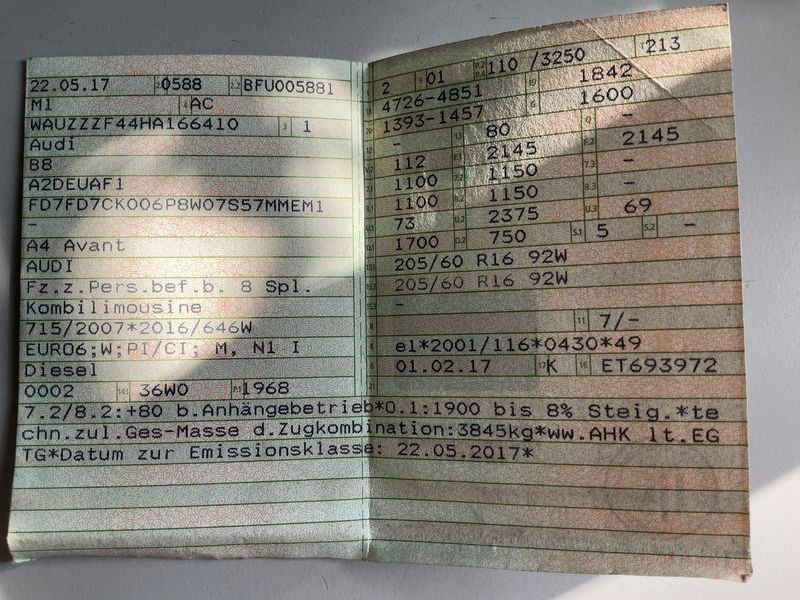 22.05.17 0588 BFU005881
M1 AC
WAUZZZF44HA166410 3 1
Audi
B8
A2DEUAF1
FD7FD7CK006P8W07S57MMEM1
-
A4 Avant
AUDI
Fz.z.Pers.bef.b. 8 Spl.
Kombilimousine
715/2007*2016/646W
EURO6;W;PI/CI; M, N1 I
Diesel
0002 14.1 36W0 P.1 1968
2 9 01 P.2 P.4 110 /3250 T 213
4726-4851 1842
1393-1457 1600
- 13 80 Q -
112 F.1 2145 F.2 2145
1100 7.2 1150 7.3 -
1100 8.2 1150 8.3 -
73 U.2 2375 U.3 69
1700 O.2 750 S.1 5 S.2 -
205/60 R16 92W
205/60 R16 92W
-
11 7/-
e1*2001/116*0430*49
01.02.17 17 K 16 ET693972
7.2/8.2:+80 b.Anhängebetrieb*O.1:1900 bis 8% Steig.*te
chn.zul.Ges-Masse d.Zugkombination:3845kg*ww.AHK lt.EG
TG*Datum zur Emissionsklasse: 22.05.2017*